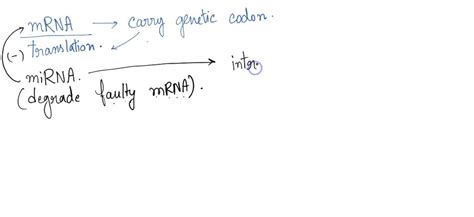 mRNA → carry genetic codon.
(-) translation.
miRNA. → inter
(degrade faulty mRNA).